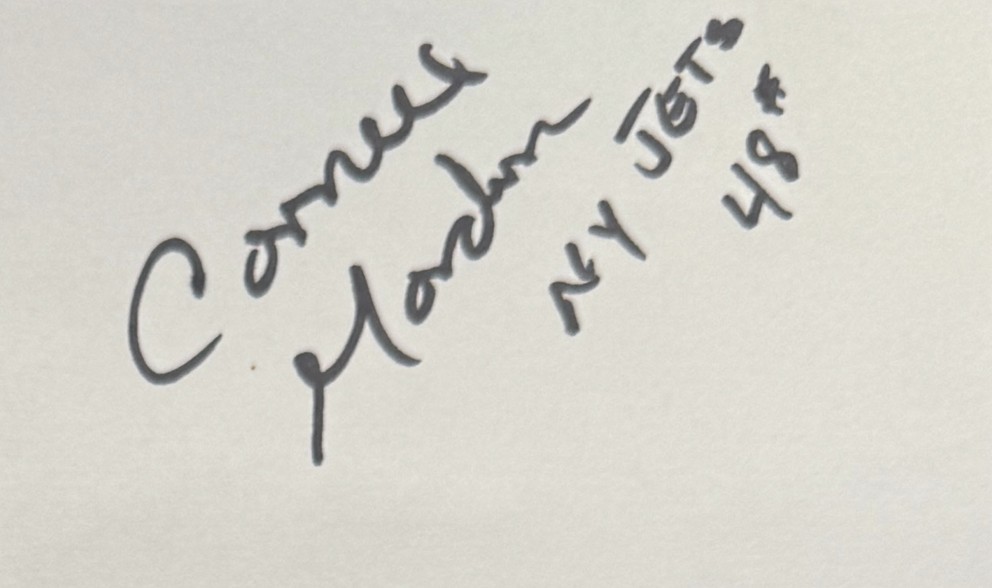 Cornell
Gordon
NY JETS
48#